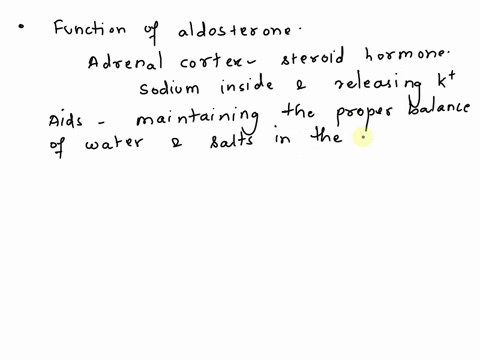 • Function of aldosterone.
Adrenal cortex - steroid hormone.
Sodium inside & releasing K+
Aids - maintaining the proper balance
of water & salts in the